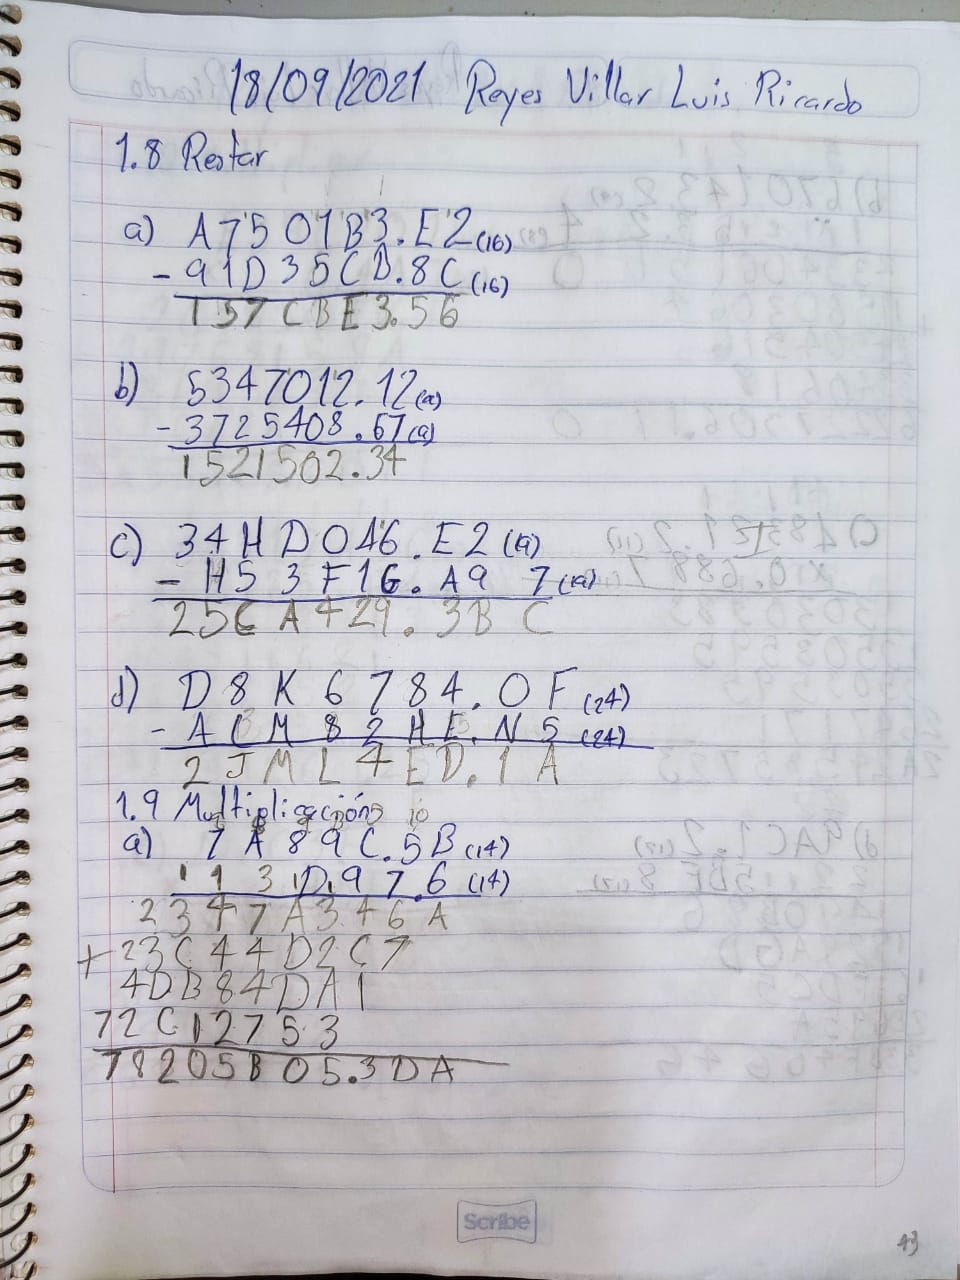 18/09/2021 Reyes Villar Luis Ricardo
1.8 Restar
a) A7501B3.E2(16)
- 91D35CB.8C(16)
157CBE3.56
b) 5347012.12(9)
- 3725408.67(9)
1521502.34
c) 34HD0A6.E2(19)
- H53F1G.A97(19)
256A429.3BC
d) D8K6784.0F(24)
- ACM82HE.N5(24)
2JML4ED.1A
1.9 Multiplicación
a) 7A89C.5B(14)
13D97.6(14)
2347A346A
+ 23C44D2C7
4DB84DA1
72C12753
78205B05.3DA
Scribe
43